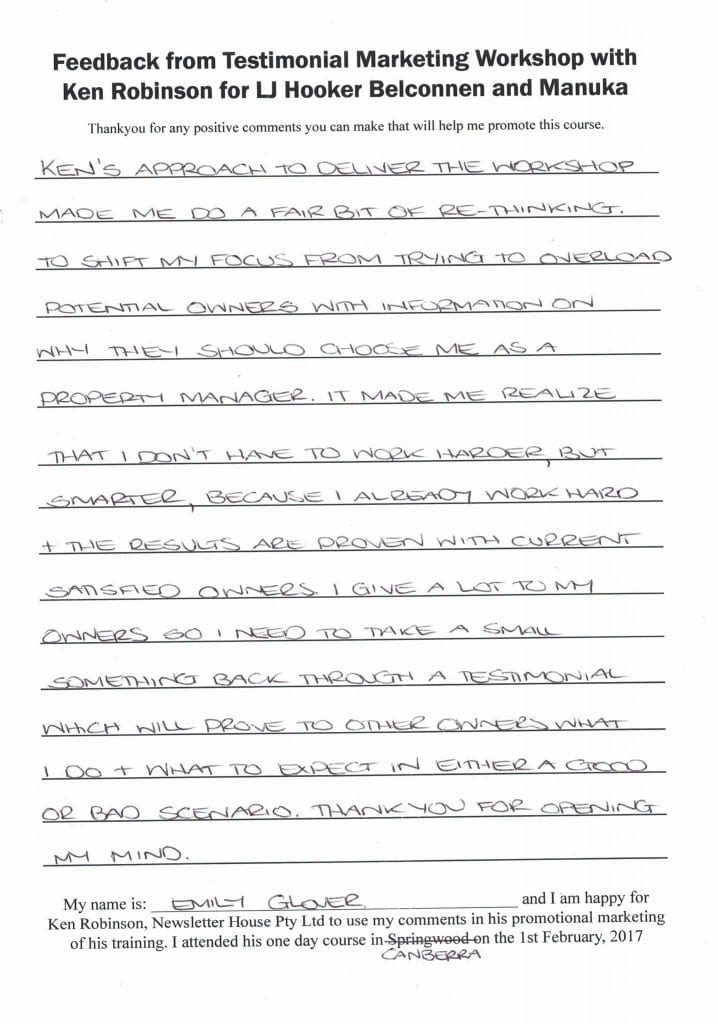 Feedback from Testimonial Marketing Workshop with
Ken Robinson for LJ Hooker Belconnen and Manuka
Thankyou for any positive comments you can make that will help me promote this course.
KEN'S APPROACH TO DELIVER THE WORKSHOP
MADE ME DO A FAIR BIT OF RE-THINKING.
TO SHIFT MY FOCUS FROM TRYING TO OVERLOAD
POTENTIAL OWNERS WITH INFORMATION ON
WHY THEY SHOULD CHOOSE ME AS A
PROPERTY MANAGER. IT MADE ME REALIZE
THAT I DON'T HAVE TO WORK HARDER, BUT
SMARTER, BECAUSE I ALREADY WORK HARD
+ THE RESULTS ARE PROVEN WITH CURRENT
SATISFIED OWNERS. I GIVE A LOT TO MY
OWNERS SO I NEED TO TAKE A SMALL
SOMETHING BACK THROUGH A TESTIMONIAL
WHICH WILL PROVE TO OTHER OWNERS WHAT
I DO + WHAT TO EXPECT IN EITHER A GOOD
OR BAD SCENARIO. THANK YOU FOR OPENING
MY MIND.
My name is: EMILY GLOVER and I am happy for
Ken Robinson, Newsletter House Pty Ltd to use my comments in his promotional marketing
of his training. I attended his one day course in Springwood on the 1st February, 2017
CANBERRA